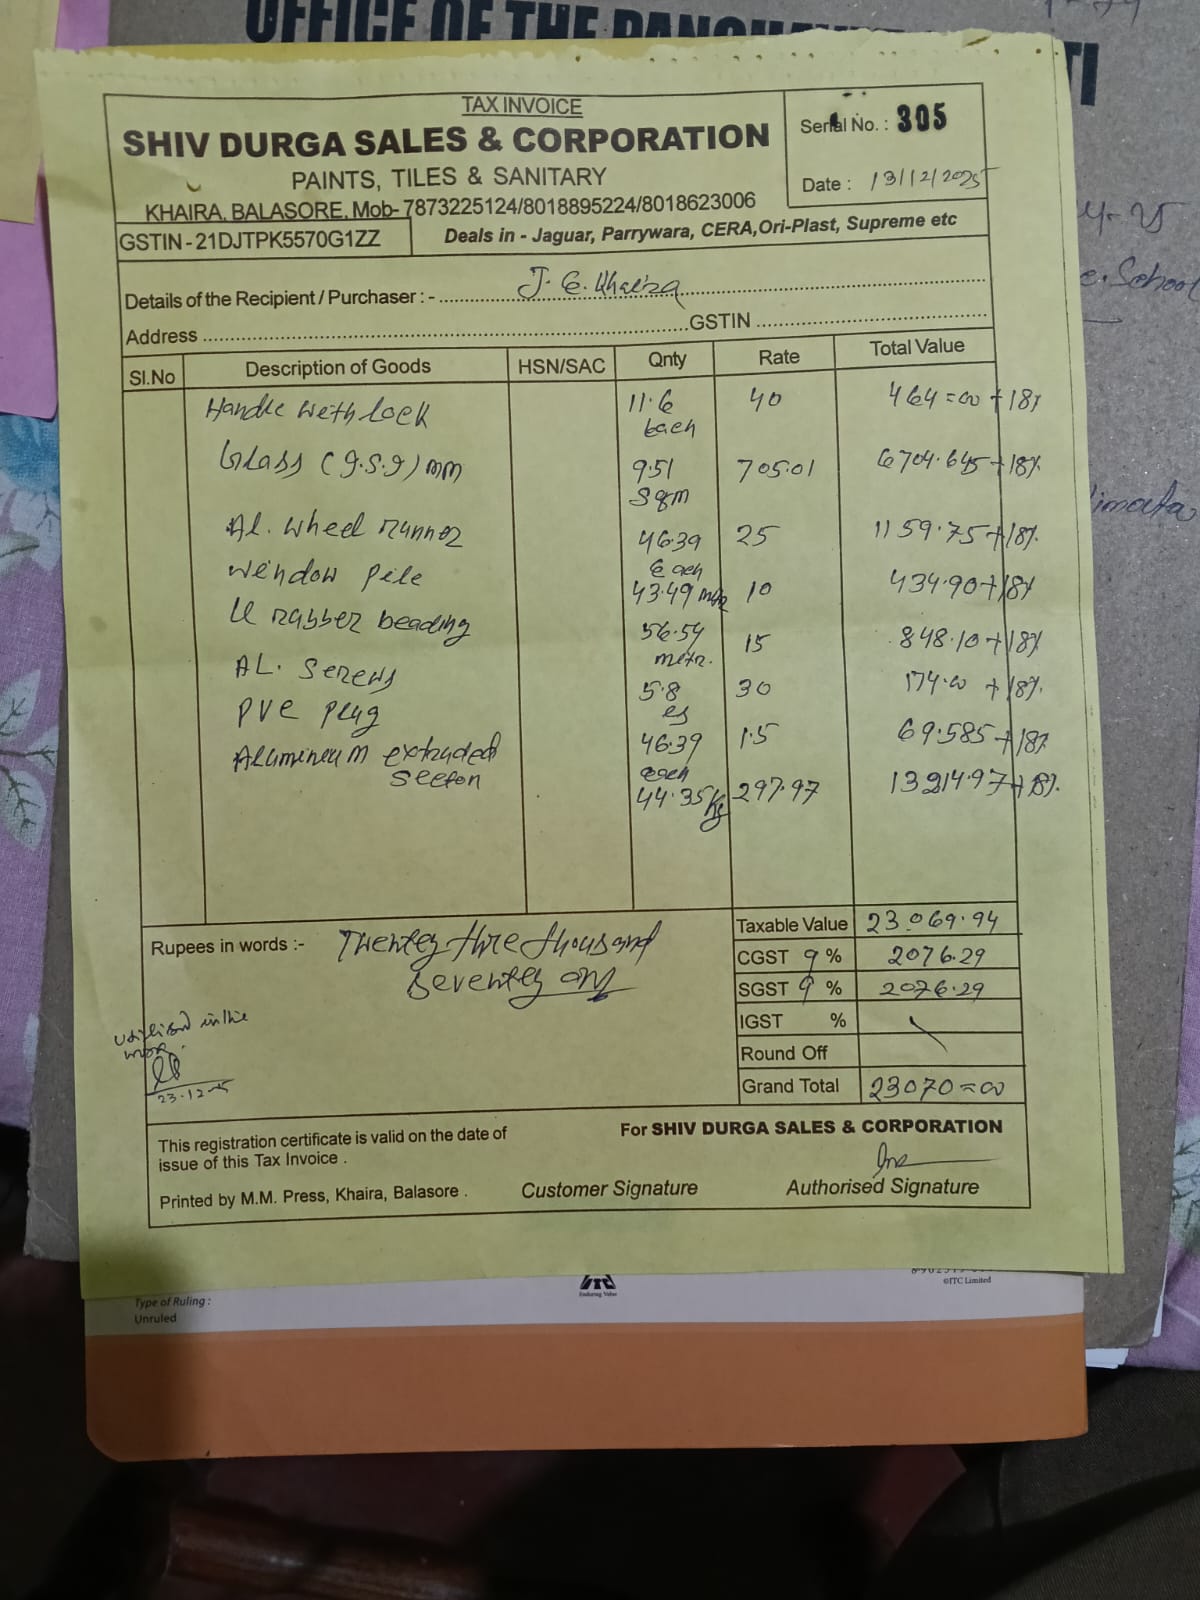 OFFICE OF THE PANCHAY TI
TAX INVOICE
SHIV DURGA SALES & CORPORATION
PAINTS, TILES & SANITARY
KHAIRA, BALASORE, Mob- 7873225124/8018895224/8018623006
Serial No. : 305
Date : 13/12/2025
GSTIN - 21DJTPK5570G1ZZ
Deals in - Jaguar, Parrywara, CERA, Ori-Plast, Supreme etc
Details of the Recipient / Purchaser : - J. E. Khaira
Address GSTIN
Sl.No Description of Goods HSN/SAC Qnty Rate Total Value
Handle with lock 11.6 each 40 464=00 + 18%
Glass (g.s.g) mm 9.51 Sqm 705.01 6704.645 + 18%
Al. wheel runner 46.39 Each 25 1159.75 + 18%
Window pile 43.49 mtr 10 434.90 + 18%
U rubber beading 56.54 metr. 15 848.10 + 18%
AL. Screws 5.8 es 30 174.00 + 18%
PVC plug 46.39 each 1.5 69.585 + 18%
Alumineum extruded
Section 44.35 Kg 297.97 13214.97 + 18%
Rupees in words :- Twenty thre thousand
Seventy only
Taxable Value 23069.94
CGST 9 % 2076.29
SGST 9 % 2076.29
IGST %
Round Off
Grand Total 23070=00
utilised in the
work.
23.12.25
This registration certificate is valid on the date of
issue of this Tax Invoice .
For SHIV DURGA SALES & CORPORATION
Printed by M.M. Press, Khaira, Balasore .
Customer Signature
Authorised Signature
e. School
Type of Ruling :
Unruled
Enduring Value
©ITC Limited